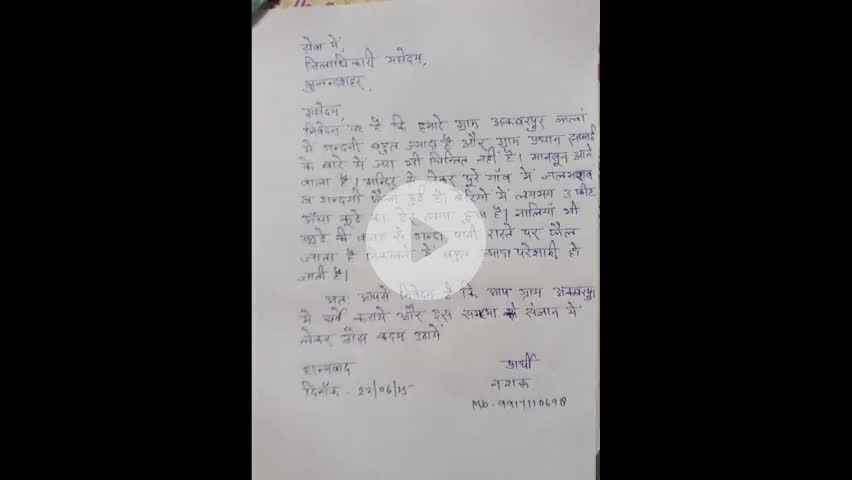 सेवा में,
जिलाधिकारी महोदय,
बुलन्दशहर,
महोदय,
निवेदन यह है कि हमारे ग्राम अकबरपुर कलां
में गन्दगी बहुत ज्यादा है और ग्राम प्रधान सफाई
के बारे में जरा भी चिन्तित नहीं है। मानसून आने
वाला है। मन्दिर से लेकर पूरे गाँव में जलभराव
व गन्दगी फैली हुई है। में लगभग 3 फीट
ऊँचा कूडे का ढेर लगा हुआ है। नालियाँ भी
कूडे की वजह से गन्दा पानी रास्ते पर फैल
जाता है निकलने में बहुत ज्यादा परेशानी हो
जाती है।
अतः आपसे निवेदन है कि आप ग्राम अकबरपुर
में सर्वे कराये और इस समस्या को संज्ञान में
लेकर ठोस कदम उठायें
धन्यवाद प्रार्थी
दिनाँक - 22/06/25
Mb. 9917110698